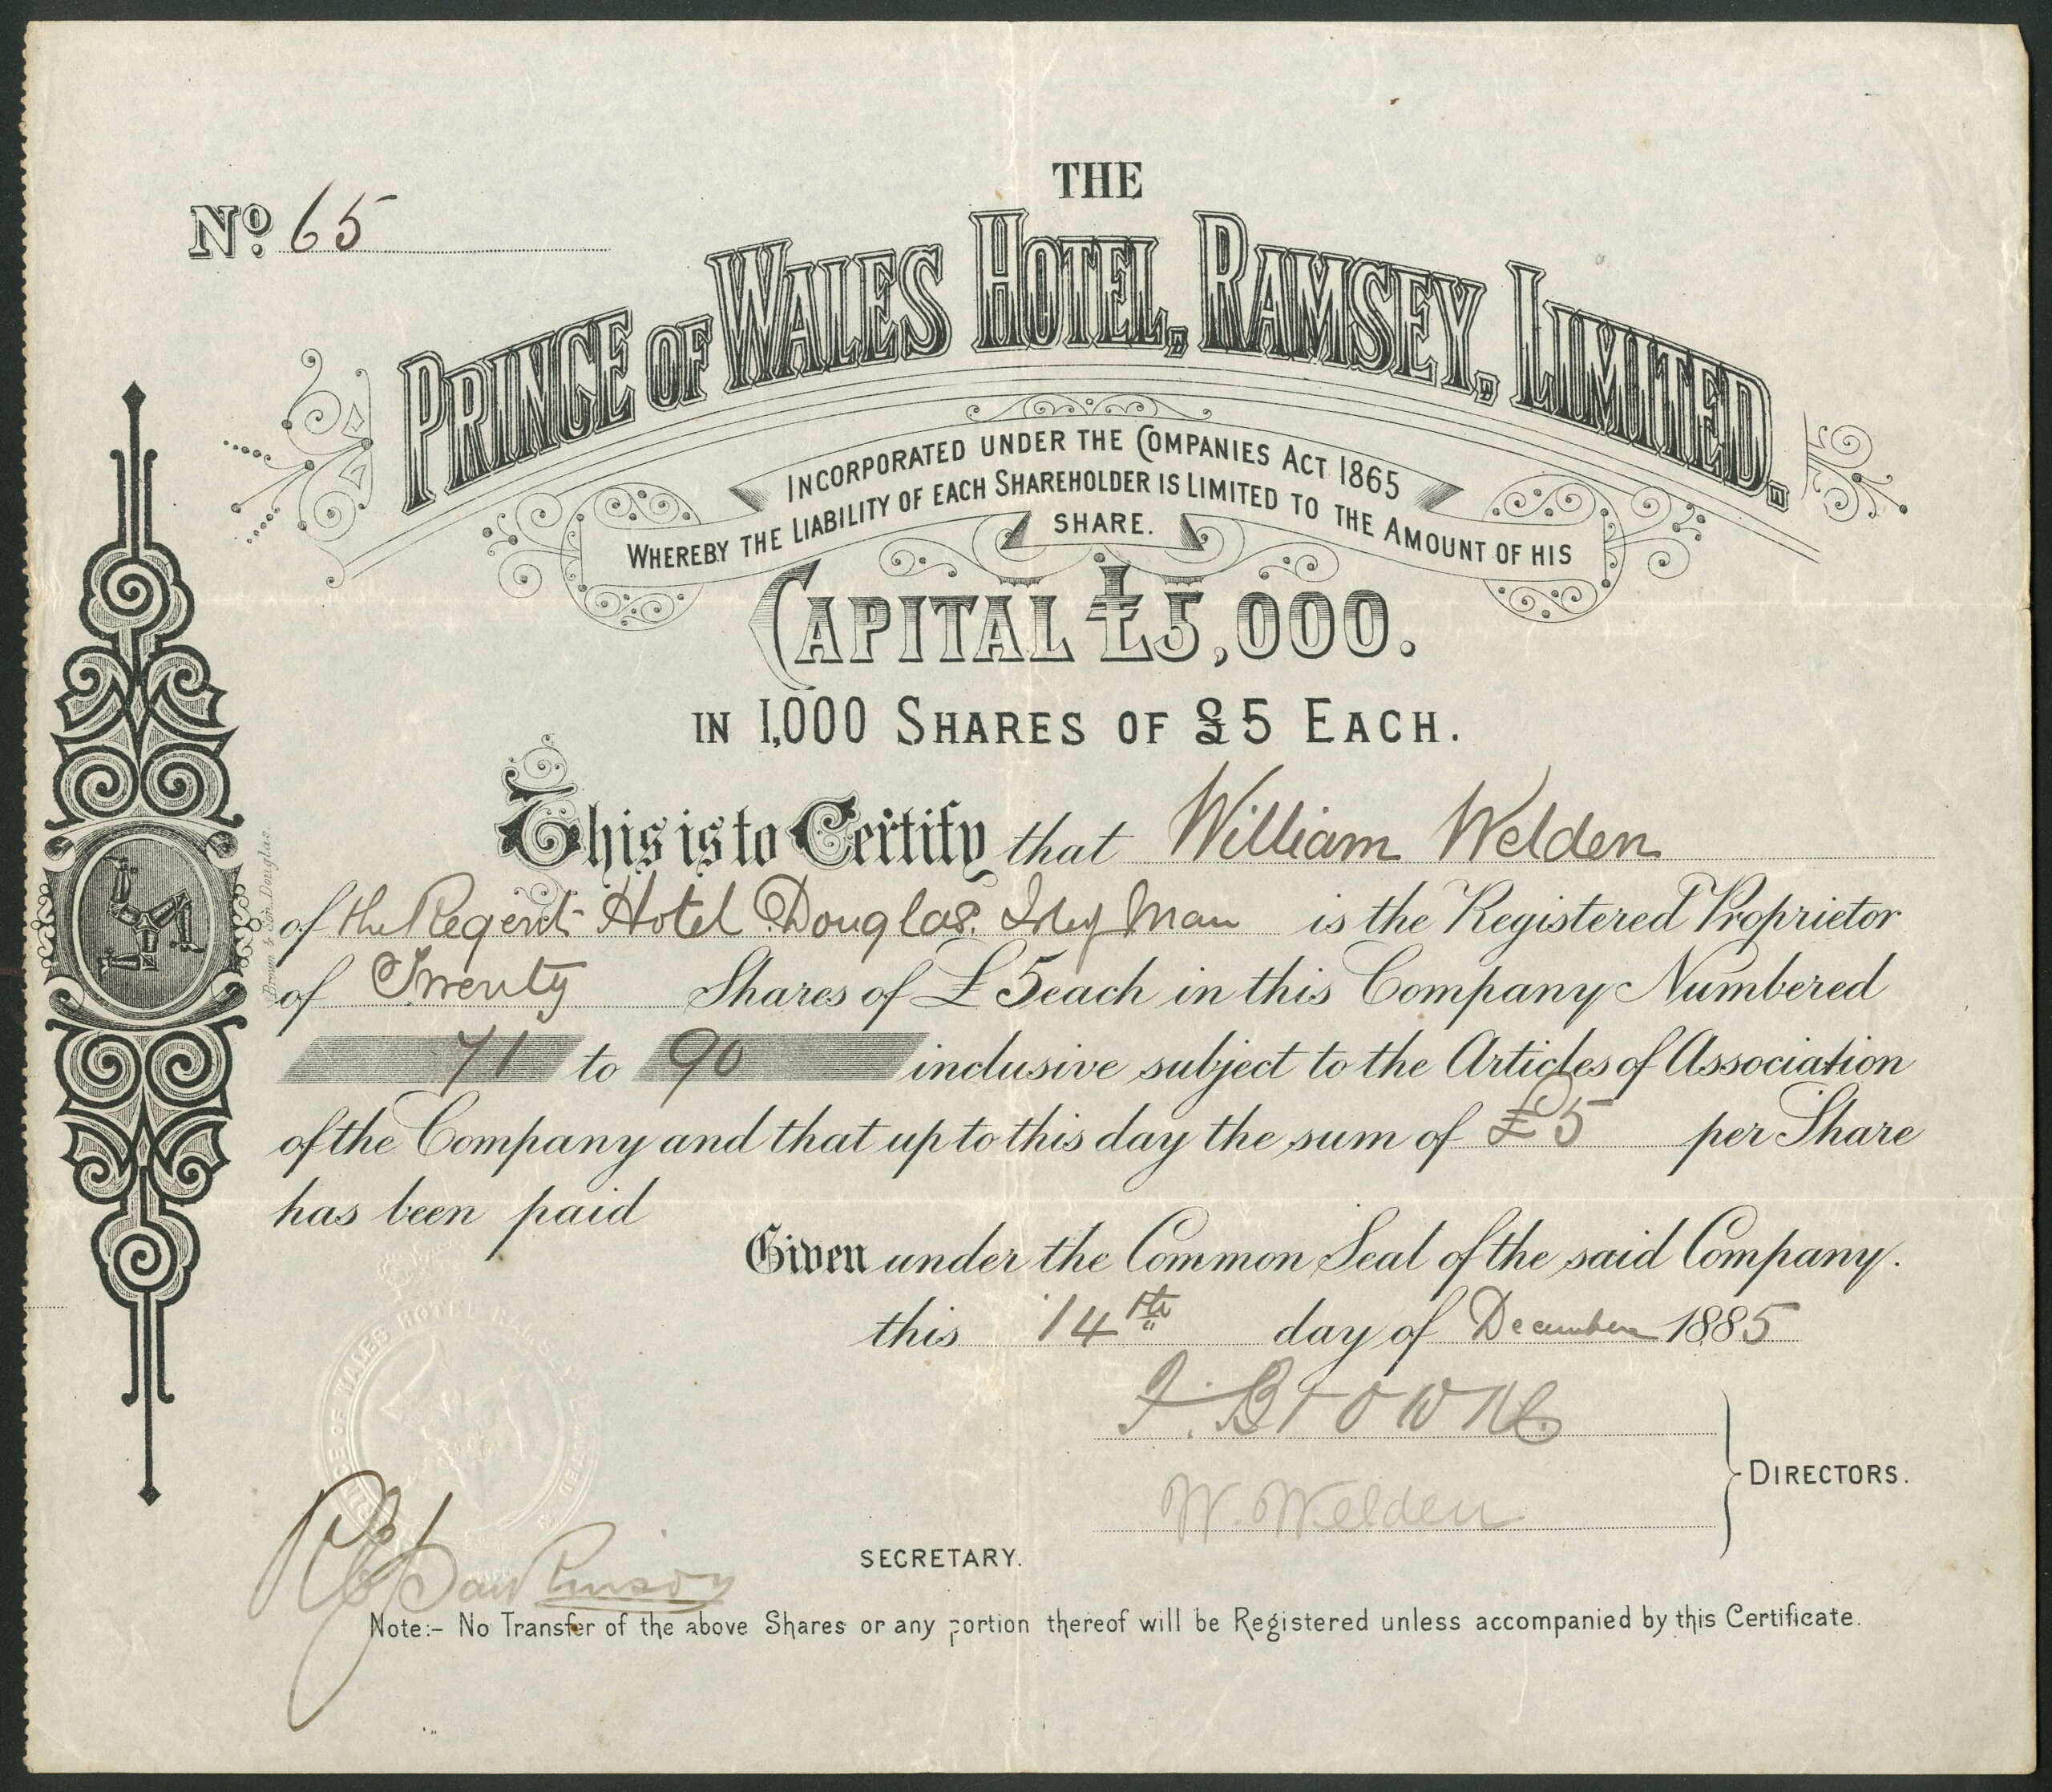 THE
No. 65
PRINCE OF WALES HOTEL, RAMSEY, LIMITED.
INCORPORATED UNDER THE COMPANIES ACT 1865
WHEREBY THE LIABILITY OF EACH SHAREHOLDER IS LIMITED TO THE AMOUNT OF HIS
SHARE.
CAPITAL £5,000.
IN 1,000 SHARES OF £5 EACH.
This is to Certify that William Welden
of the Regent Hotel Douglas. Isle of Man is the Registered Proprietor
of Twenty Shares of £5 each in this Company Numbered
71 to 90 inclusive subject to the Articles of Association
of the Company and that up to this day the sum of £5 per Share
has been paid
Given under the Common Seal of the said Company.
this 14th day of December 1885
J. Browne
W. Welden
DIRECTORS.
SECRETARY.
Note:- No Transfer of the above Shares or any portion thereof will be Registered unless accompanied by this Certificate.
Brown & Son, Douglas.
PRINCE OF WALES HOTEL RAMSEY LIMITED